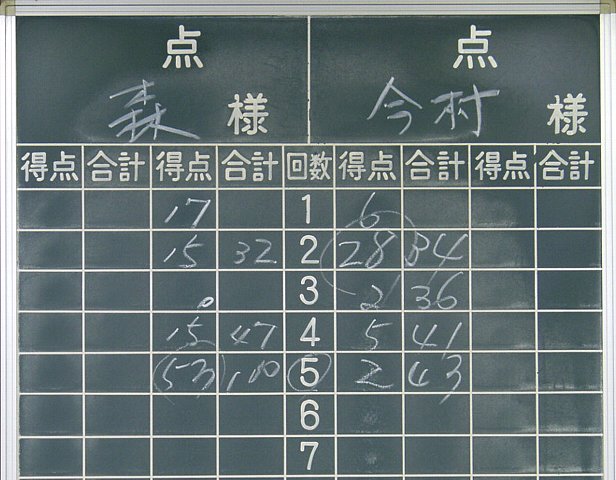 点 点
森 様 今村 様
得点 合計 得点 合計 回数 得点 合計 得点 合計
17 1 6
15 32 2 28 34
0 3 2 36
15 47 4 5 41
(53) 100 5 2 43
6
7